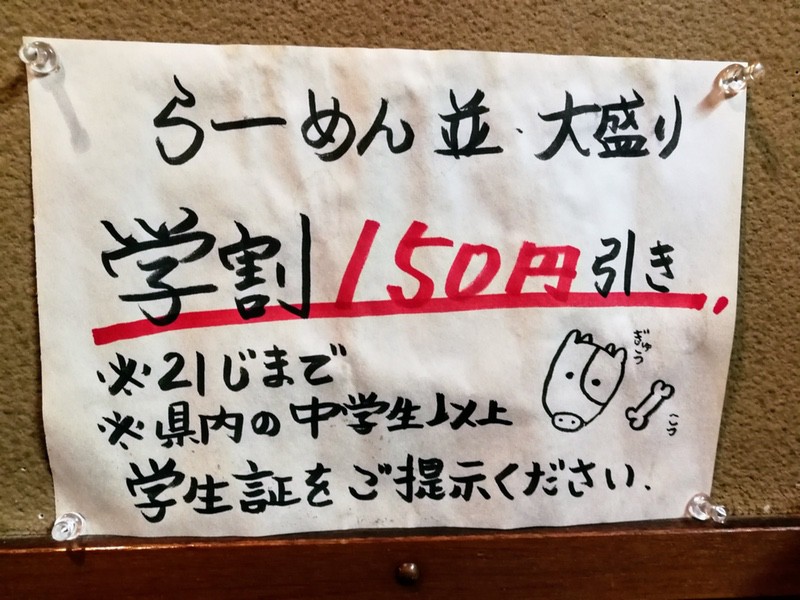 らーめん 並・大盛り
学割 150円引き
※21じまで
※県内の中学生以上
学生証をご提示ください.
ぎゅう
こつ